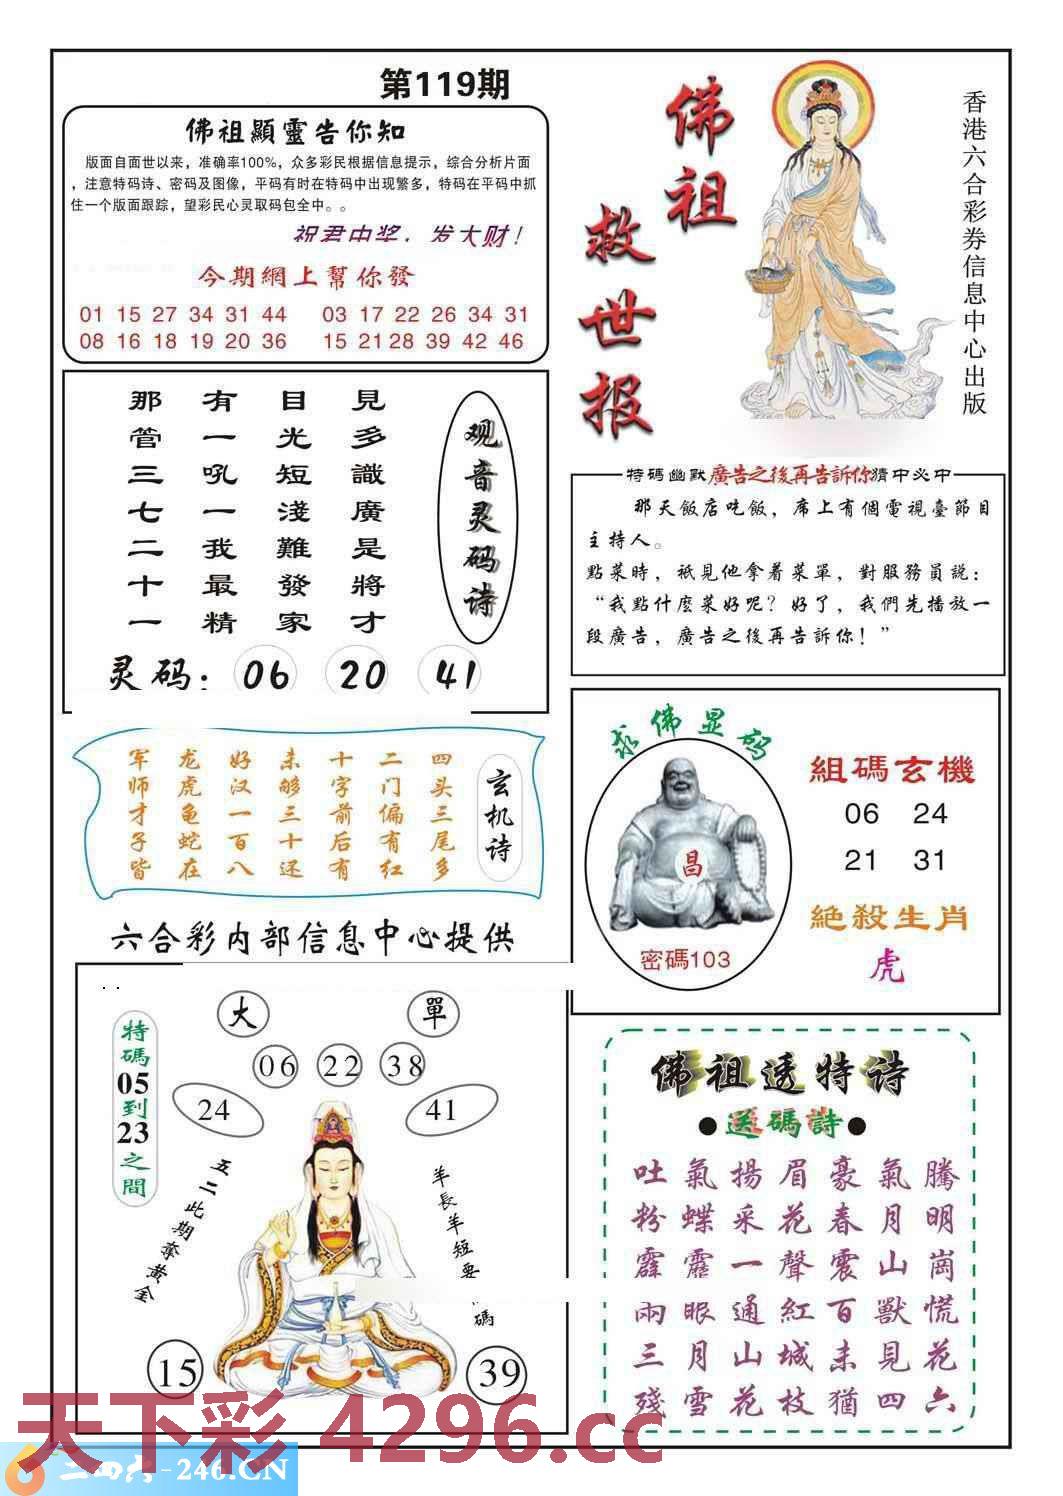 第119期
佛祖顯靈告你知
版面自面世以来，准确率100%，众多彩民根据信息提示，综合分析片面
，注意特码诗、密码及图像，平码有时在特码中出现繁多，特码在平码中抓
住一个版面跟踪，望彩民心灵取码包全中。。
祝君中奖，发大财！
今期網上幫你發
01 15 27 34 31 44  03 17 22 26 34 31
08 16 18 19 20 36  15 21 28 39 42 46
佛祖
救世报
香港六合彩券信息中心出版
观音灵码诗
見多識廣是將才
目光短淺難發家
有一吼一我最精
那管三七二十一
灵码：06 20 41
特碼幽默廣告之後再告訴你猜中必中
那天飯店吃飯，席上有個電視臺節目
主持人。
點菜時，衹見他拿着菜單，對服務員説：
“我點什麼菜好呢？好了，我們先播放一
段廣告，廣告之後再告訴你！”
玄机诗
四头三尾多
二门偏有红
十字前后有
未够三十还
好汉一百八
龙虎龟蛇在
军师才子皆
求佛显码
昌
密碼103
組碼玄機
06 24
21 31
絶殺生肖
虎
六合彩内部信息中心提供
特碼05到23之間
大 單
06 22 38
24 41
五二此期奪黄金
羊長羊短要
碼
15 39
佛祖透特诗
●送碼詩●
吐氣揚眉豪氣騰
粉蝶采花春月明
霹靂一聲震山崗
兩眼通紅百獸慌
三月山城未見花
殘雪花枝猶四六
天下彩 4296.cc
二四六-246.CN